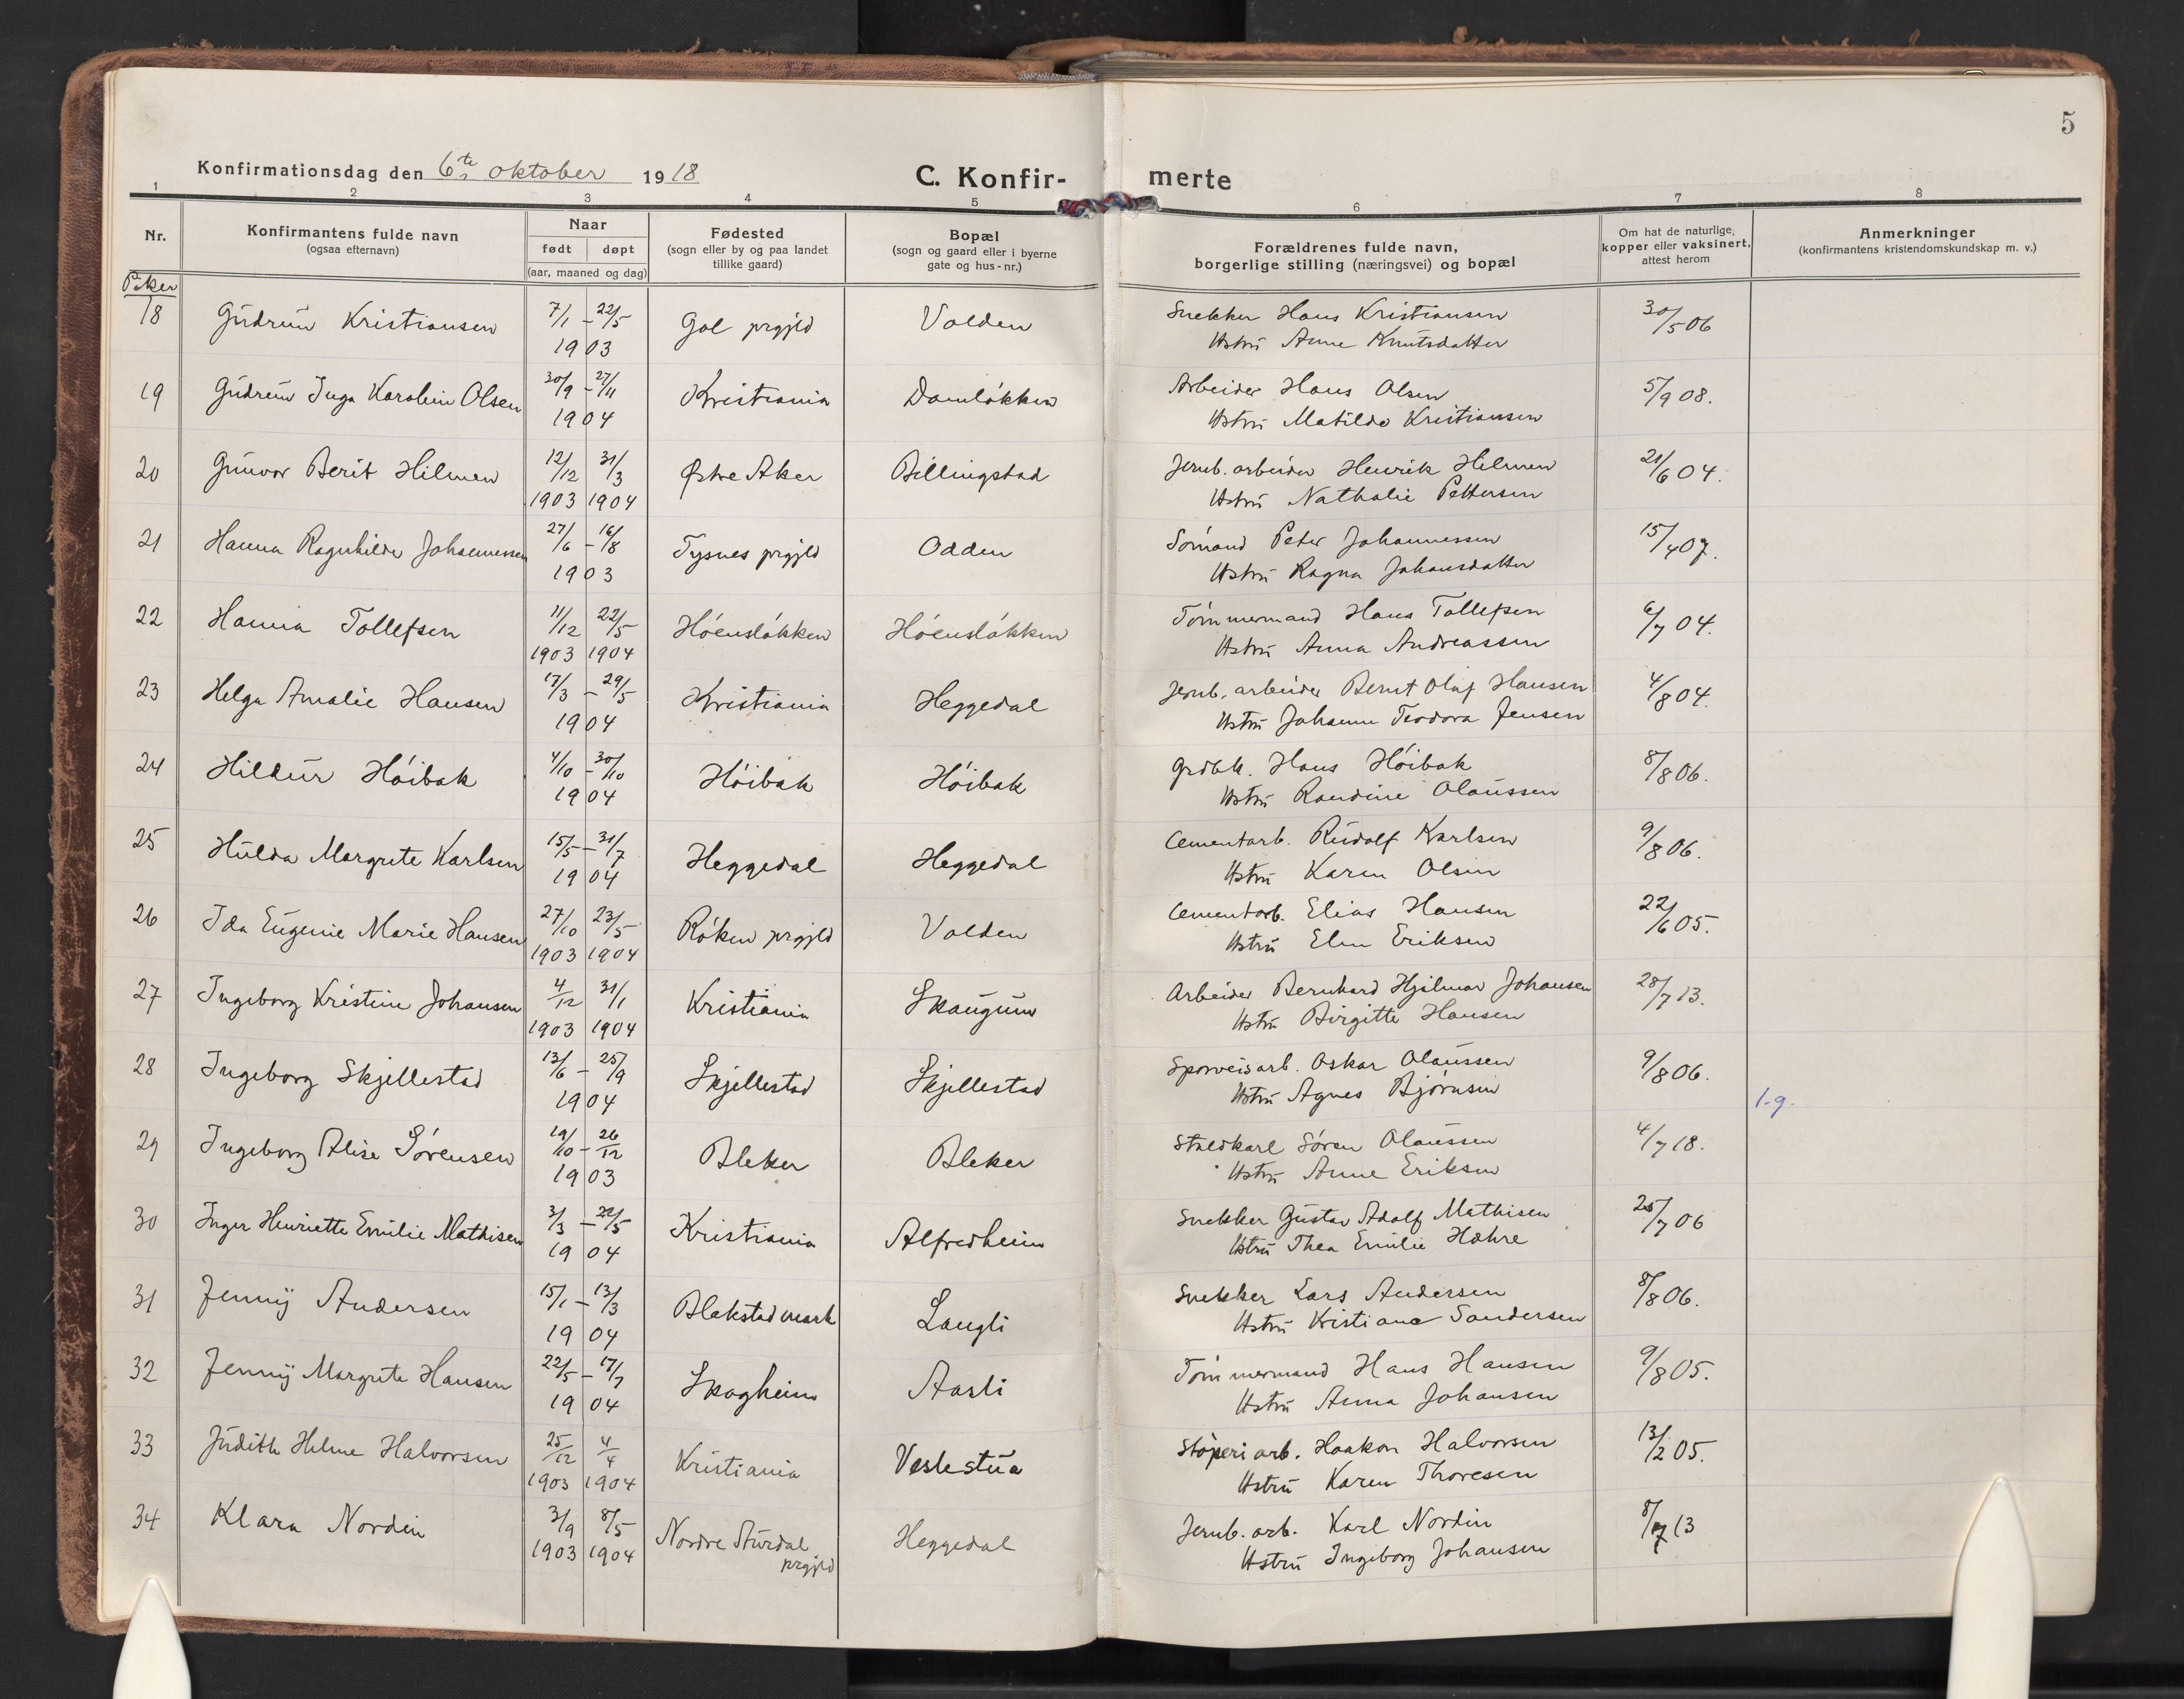 5
Konfirmationsdag den 6te oktober 1918
C. Konfir- merte
1 2 3 4 5 6 7 8
Nr.
Konfirmantens fulde navn
(ogsaa efternavn)
Naar
født døpt
(aar, maaned og dag)
Fødested
(sogn eller by og paa landet
tillike gaard)
Bopæl
(sogn og gaard eller i byerne
gate og hus-nr.)
Forældrenes fulde navn,
borgerlige stilling (næringsvei) og bopæl
Om hat de naturlige,
kopper eller vaksinert,
attest herom
Anmerkninger
(konfirmantens kristendomskundskap m. v.)
Piker
18 Gudrun Kristiansen 7/1 - 22/5 Gol prgjld Valden Snekker Hans Kristiansen 30/5 06
1903 Hstru Anne Knutsdatter
19 Gudrun Inga Karolin Olsen 30/9 - 27/11 Kristiania Damløkken Arbeider Hans Olsen 5/9 08.
1904 Hstru Matilde Kristiansen
20 Gunvor Berit Hilmen 12/12 31/3 Østre Aker Billingstad Jernb. arbeider Henrik Hilmen 21/6 04.
1903 1904 Hstru Nathalie Pettersen
21 Hanna Ragnhilda Johannessen 27/6 - 16/8 Tysnes prgjld Odden Sømand Peter Johannessen 15/4 07.
1903 Hstru Ragna Johansdatter
22 Hanna Tollefsen 11/12 22/5 Høensløkken Høensløkken Tømmermand Hans Tollefsen 6/7 04.
1903 1904 Hstru Anna Andreassen
23 Helga Amalie Hansen 17/3 - 29/5 Kristiania Heggedal Jernb. arbeider Bernt Olaf Hansen 4/8 04.
1904 Hstru Johanne Teodora Jensen
24 Hildur Høibak 4/10 - 30/10 Høibak Høibak Grdbk. Hans Høibak 8/8 06.
1904 Hstru Randine Olaussen
25 Hulda Margrete Karlsen 15/5 - 31/7 Heggedal Heggedal Cementarb. Rudolf Karlsen 9/8 06.
1904 Hstru Karen Olsen
26 Ida Eugenie Marie Hansen 27/10 23/5 Røken prgjld Valden Cementarb. Elias Hansen 22/6 05.
1903 1904 Hstru Elen Eriksen
27 Ingeborg Kristine Johansen 4/12 31/1 Kristiania Skaugum Arbeider Bernhard Hjalmar Johansen 28/7 13.
1903 1904 Hstru Birgitte Hansen
28 Ingeborg Skjellestad 13/6 - 25/9 Skjellestad Skjellestad Sporveisarb. Oskar Olaussen 9/8 06.
1904 Hstru Agnes Bjørnsen 1.g.
29 Ingeborg Alise Sørensen 19/10 - 26/12 Bleker Bleker Staldkarl Søren Olaussen 4/7 18.
1903 Hstru Anne Eriksen
30 Inger Henriette Emilie Mathisen 3/3 - 22/5 Kristiania Alfredheim Snekker Gustav Adolf Mathisen 25/7 06
1904 Hstru Thea Emilie Hæhre
31 Jenny Andersen 15/1 - 13/3 Blakstadmark Laugli Snekker Lars Andersen 8/8 06.
1904 Hstru Kristiane Sandersen
32 Jenny Margrete Hansen 22/5 - 17/7 Skogheim Aasli Tømmermand Hans Hansen 9/8 05.
1904 Hstru Anna Johansen
33 Judith Helene Halvorsen 25/12 4/4 Kristiania Veslestua Støperiarb. Haakon Halvorsen 13/2 05.
1903 1904 Hstru Karen Thoresen
34 Klara Nordin 3/9 8/5 Nordre Aurdal Heggedal Jernb. arb. Karl Nordin 8/7 13
1903 1904 prgjld Hstru Ingeborg Johansen